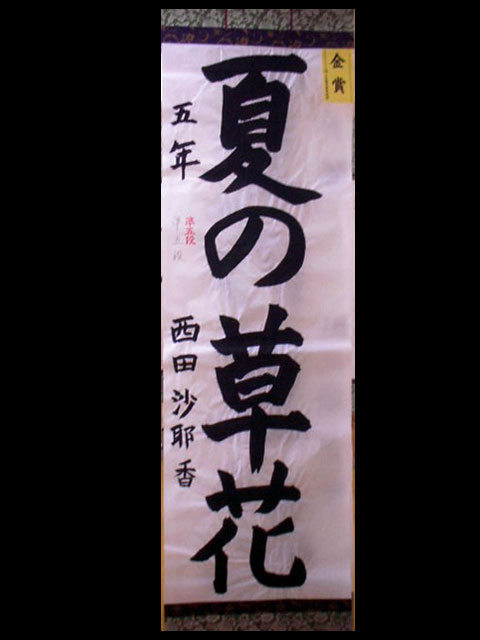 金賞
夏の草花
五年 西田沙耶香
準五段
準五段